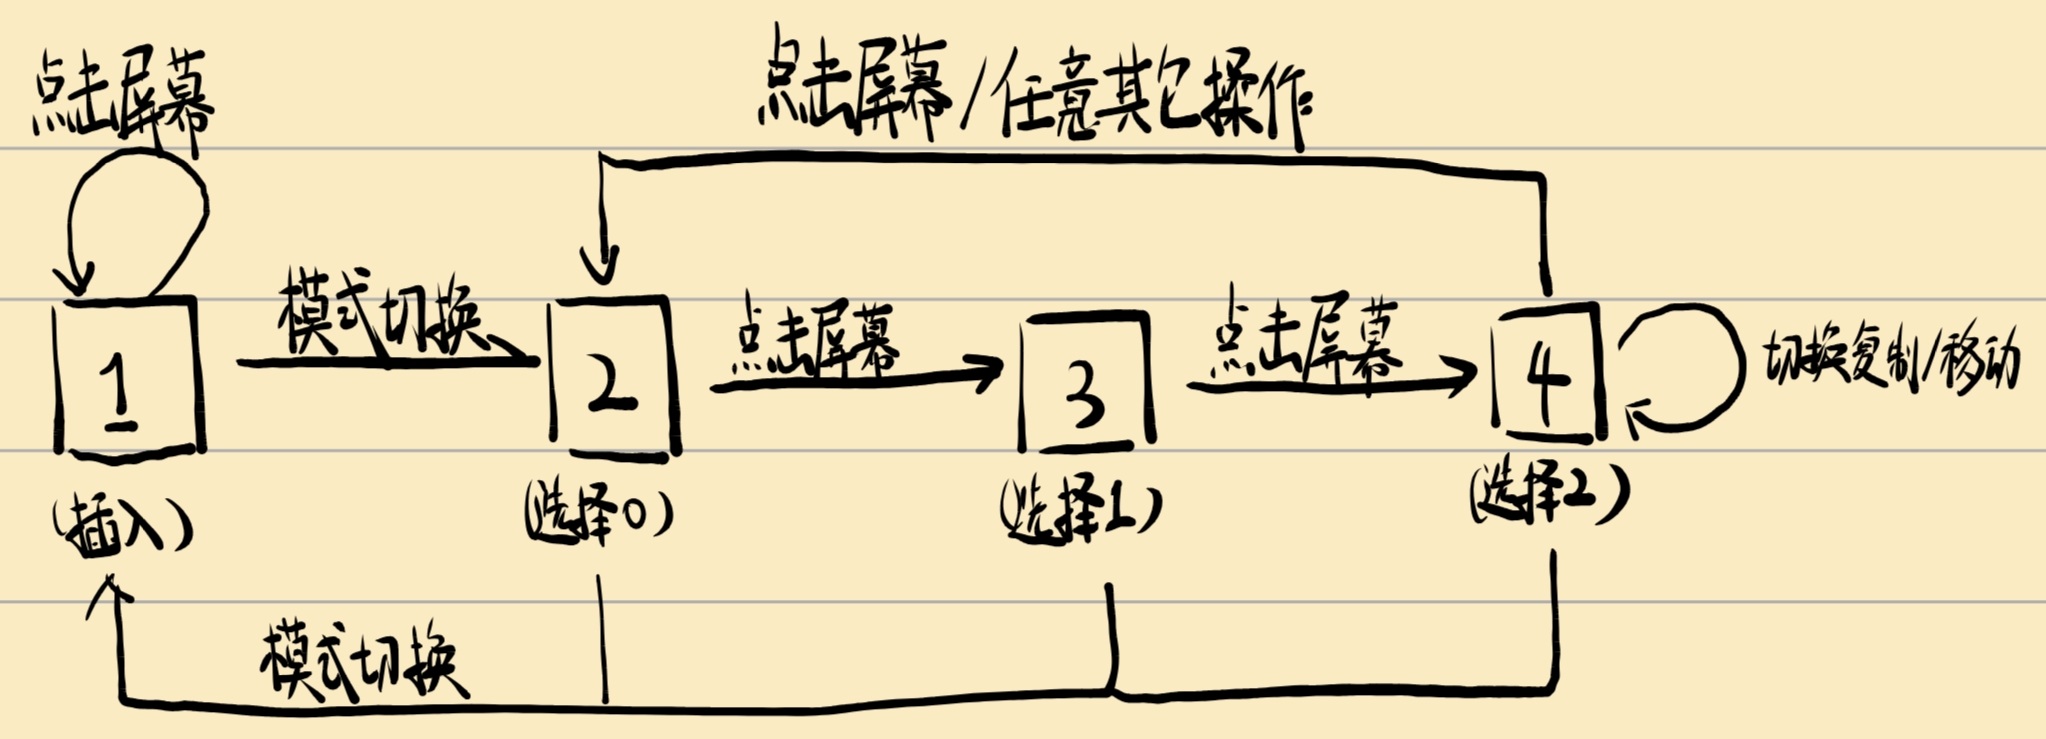 点击屏幕
点击屏幕/任意其它操作
模式切换
点击屏幕
点击屏幕
切换复制/移动
1
2
3
4
(插入)
(选择0)
(选择1)
(选择2)
模式切换